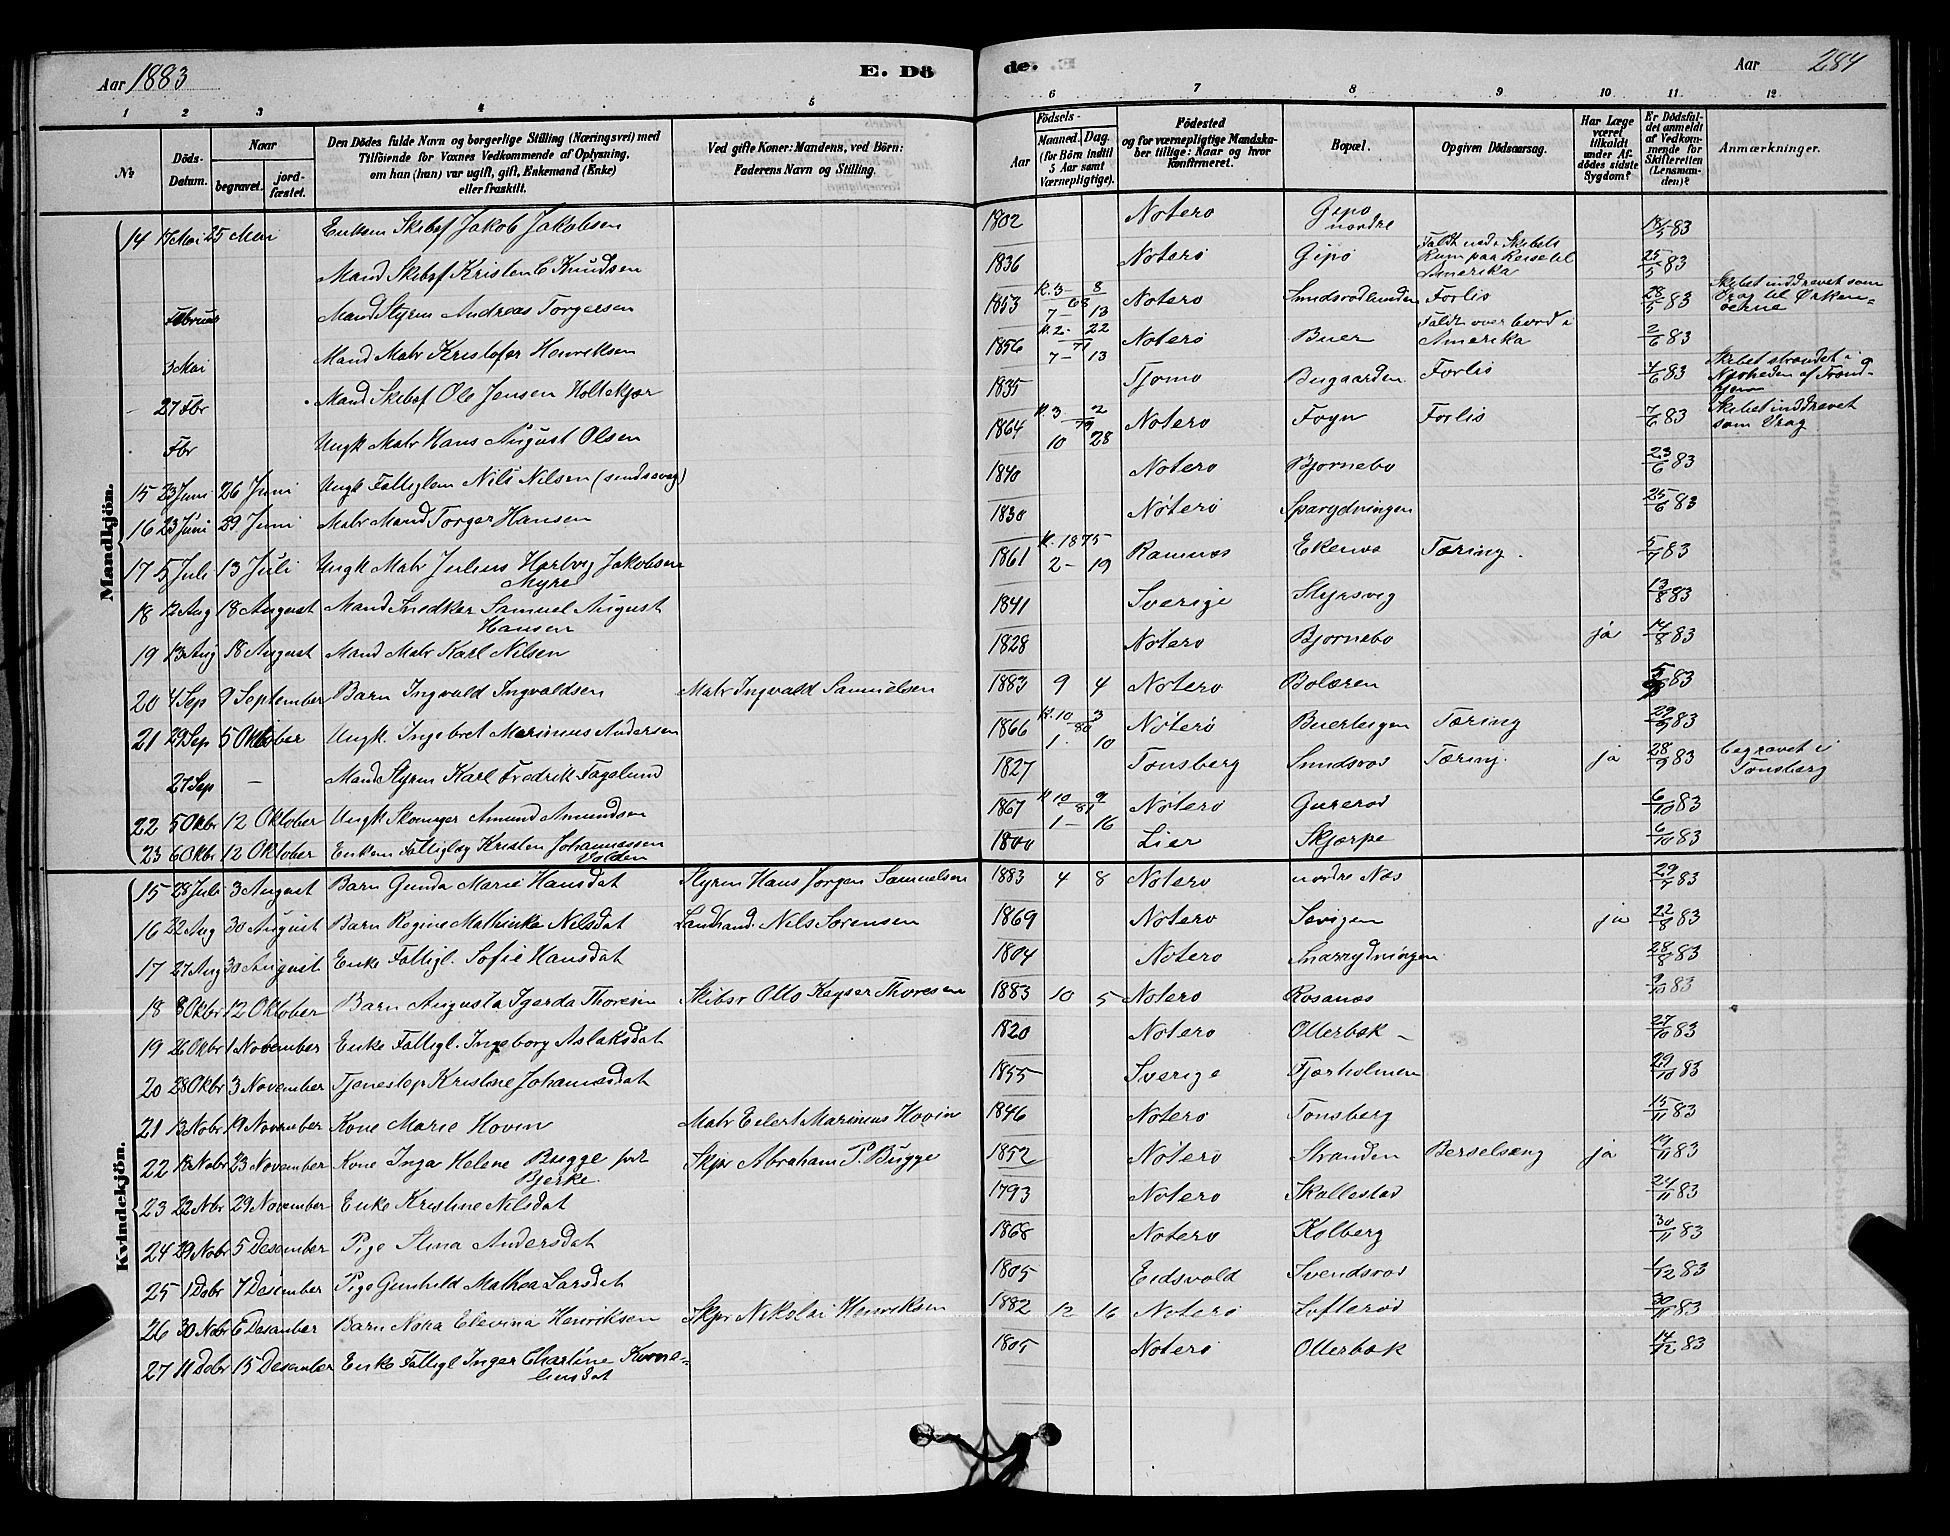 Aar 1883 E. Dö de. Aar 284
1 2 3 4 5 6 7 8 9 10 11 12
No Döds-Datum. Naar begravet. jord-fæstet.
Den Dödes fulde Navn og borgerlige Stilling (Næringsvei) med
Tilföiende for Voxnes Vedkommende af Oplysning,
om han (hun) var ugift, gift, Enkemand (Enke)
eller fraskilt.
Ved gifte Koner: Mandens, ved Börn:
Faderens Navn og Stilling.
Födsels-
Aar Maaned. Dag.
(for Börn indtil
5 Aar samt
Værnepligtige).
Födested
og for værnepligtige Mandska-
ber tillige: Naar og hvor
konfirmeret.
Bopæl.
Opgiven Dödsaarsag.
Har Læge
været
tilkaldt
under Af-
dödes sidste
Sygdom?
Er Dödsfal-
det anmeldt
af Vedkom-
mende for
Skifteretten
(Lensman-
den)?
Anmærkninger.
Mandkjön.
14 Mai 25 Mai Enkem Skibsf Jakob Jakobsen 1802 Notero Gipo nordre 83
Mand Skibsf Kristen C Knudsen 1836 Notero Gipo Faldt ned i Skibets Rum paa Reise til Amerika 25/5 83
Februar Mand Styrm Andreas Torgersen 1853 K. 3-8/68 7-13 Notero Smidsrodlunden Forlis 28/5 83 Skibet inddrevet som Vrag til Orkenoerne
3 Mai Mand Matr Kristofer Henriksen 1856 K. 2-22/71 7-13 Notero Buer Faldt over bord i Amerika 2/6 83
27 Fbr Mand Skibsf Ole Jensen Holtekjær 1835 Tjomo Bugaarden Forlis 4/6 83 Skibet strandet i Nærheden af Trondhjem
Fbr Ungk Matr Hans August Olsen 1864 K. 3 2/79 10 28 Notero Foyn Forlis 7/6 83 Skibet inddrevet som Vrag
15 23 Juni 26 Juni Ungk Fattiglem Nils Nilsen (sindssvag) 1840 Notero Bjornebo 23/6 83
16 23 Juni 29 Juni Matr Mand Torger Hansen 1830 Notero 25/6 83
17 5 Juli 13 Juli Ungk Matr Julius Hartvig Jakobsen Myre 1861 K. 1875 2-19 Ramnæs Ekenæs Tæring. 5/7 83
18 12 Aug 18 August Mand Snedker Samuel August Hansen 1841 Sverige Styrsvig 13/8 83
19 13 Aug 18 August Mand Matr Karl Nilsen 1828 Notero Bjornebo ja 17/8 83
20 4 Sep 9 September Barn Ingvald Ingvaldsen Matr Ingvald Samuelsen 1883 9 4 Notero Bolæren 83
21 29 Sep 5 Oktober Ungk. Ingebret Marinius Andersen 1866 K. 10 3/80 1. 10 Notero Buerbergen Tæring 29/9 83
27 Sep - Mand Styrm Karl Fredrik Fagelund 1827 Tonsberg Smidsrod Tæring. ja 28/9 83 begravet i Tonsberg
22 5 Okbr 12 Oktober Ungk Skomager Amund Amundsen 1867 K 10 9/81 1-16 Notero Gurerod 6/10 83
23 6 Okbr 12 Oktober Enkem Fattiglag Kristen Johannessen Volden 1800 Lier Skjærpe 6/10 83
Kvindekjön.
15 28 Juli 3 August Barn Gunda Marie Hansdat Styrm Hans Jorgen Samuelsen 1883 4 8 Notero nordre Næs 29/7 83
16 22 Aug 30 August Barn Regine Mathinke Nilsdat Landhand. Nils Sorensen 1869 Notero ja 22/8 83
17 27 Aug 30 August Enke Fattigl. Sofie Hansdat 1804 Notero Snarrydningen 28/8 83
18 8 Okbr 12 Oktober Barn Augusta Igerda Thoresen Skibsr Otto Keyser Thoresen 1883 10 5 Notero Rosanæs 9/10 83
19 26 Okbr 1 November Enke Fattigl. Ingeborg Aslaksdat 1820 Notero Otterbæk - 27/10 83
20 28 Okbr 3 November Tjenestep Kristine Johannsdat 1855 Sverige Fjærholmen 29/10 83
21 13 Nobr 19 November Kone Marie Hovin Matr Eilert Marinius Hovin 1846 Notero Tonsberg 15/11 83
22 Nobr 23 November Kone Inga Helene Bugge fodt Bjerke. Skpr Abraham P. Bugge 1852 Notero Stranden Berselsæng ja 83
23 22 Nbr 29 November Enke Kristine Nilsdat 1793 Notero Skallestad 24/11 83
24 29 Nobr 5 Desember Pige Stina Andersdat 1868 Notero Kolberg 30/11 83
25 1 Dobr 7 Desember Pige Gunhild Mathea Larsdat 1805 Eidsvold Svendsrod 1/12 83
26 30 Nobr 6 Desember Barn Nora Elevina Henriksen Skpr Nikolai Henriksen 1882 12 16 Notero Lofterod 30/11 83
27 11 Dobr 15 Desember Enke Fattigl Inger Chartine Korneliusdat 1805 Notero Otterbæk 14/12 83